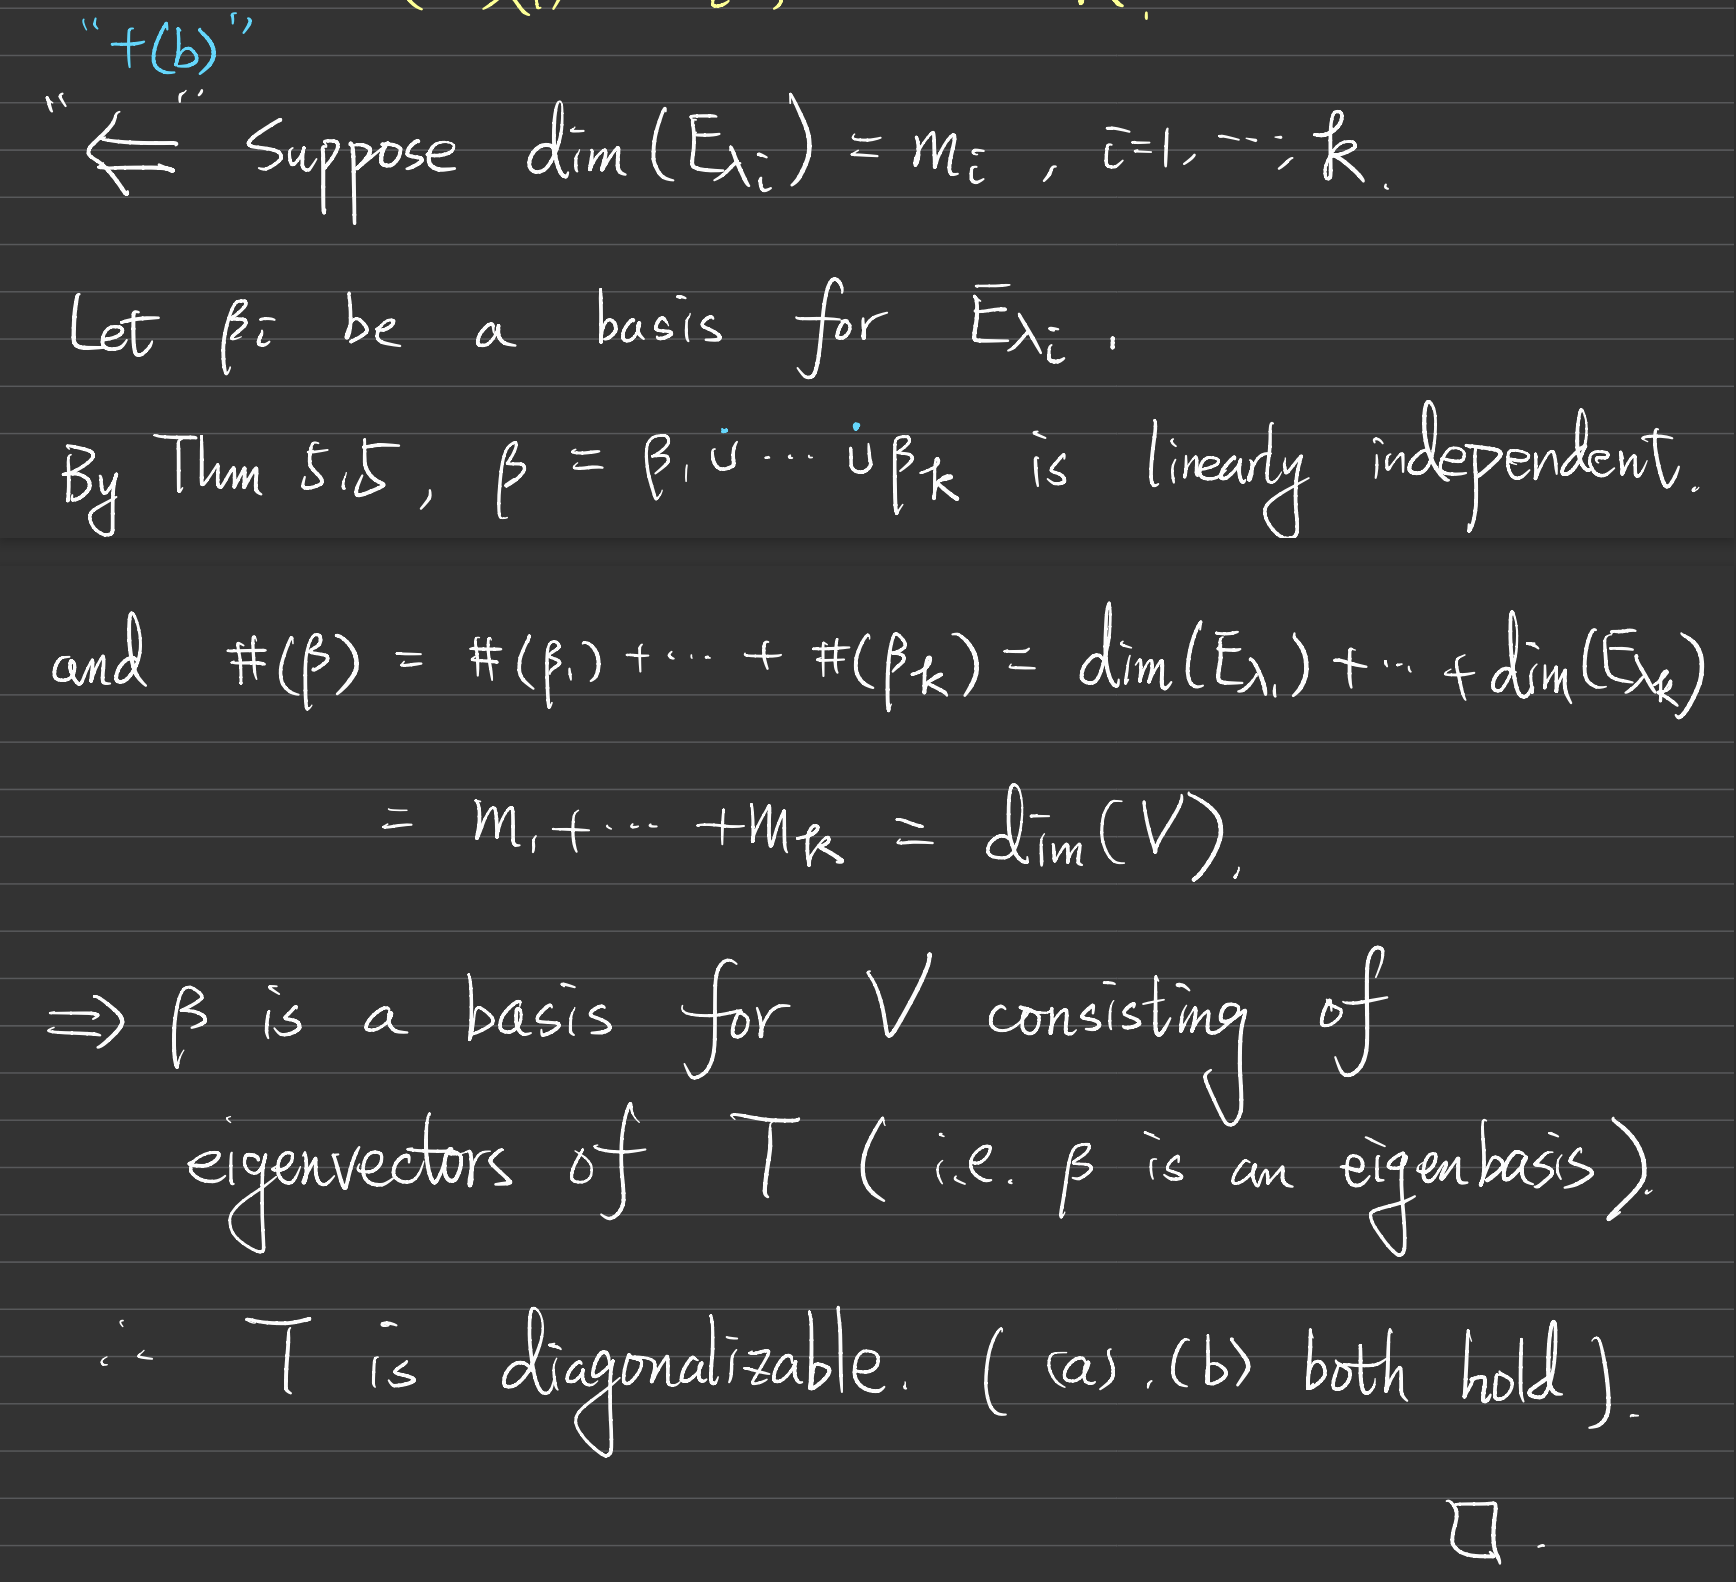 "+(b)"
"⇐" Suppose dim(E_{λ_i}) = m_i , i=1, ..., k.
Let β_i be a basis for E_{λ_i}.
By Thm 5.5, β = β_1 ∪̇ ... ∪̇ β_k is linearly independent.
and #(β) = #(β_1) + ... + #(β_k) = dim(E_{λ_1}) + ... + dim(E_{λ_k})
= m_1 + ... + m_k = dim(V).
⇒ β is a basis for V consisting of
eigenvectors of T (i.e. β is an eigenbasis).
∴ T is diagonalizable. ((a), (b) both hold).
□.